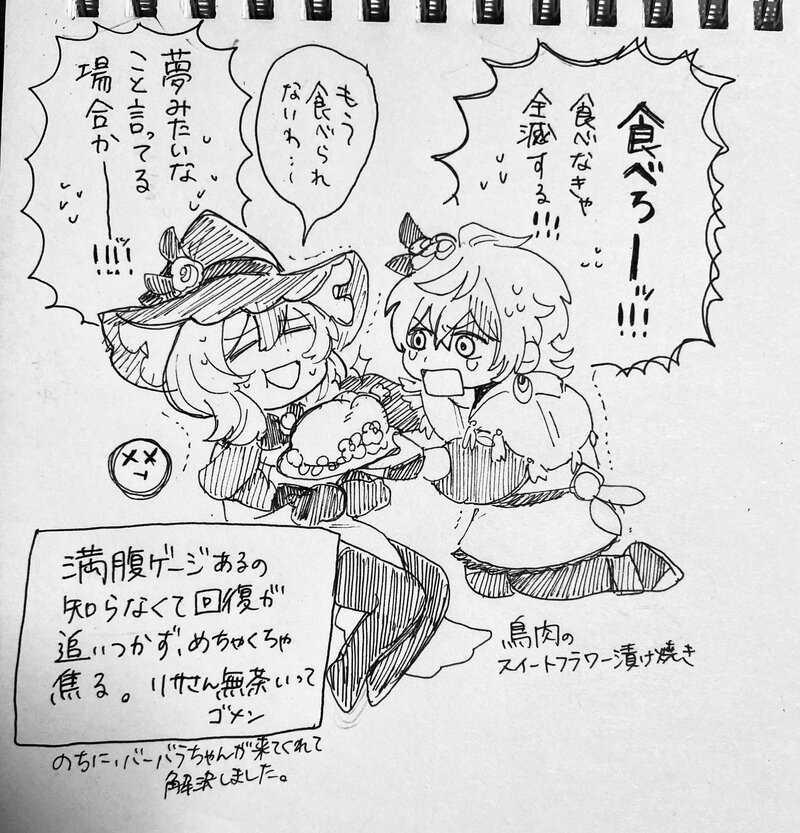 食べろーッ!!!
食べなきゃ
全滅する!!!
もう
食べられ
ないわ…
夢みたいな
こと言ってる
場合かーーッ!!!
満腹ゲージあるの
知らなくて回復が
追いつかず、めちゃくちゃ
焦る。リサさん無茶いって
ゴメン
のちに、バーバラちゃんが来てくれて
解決しました。
鳥肉の
スイートフラワー漬け焼き